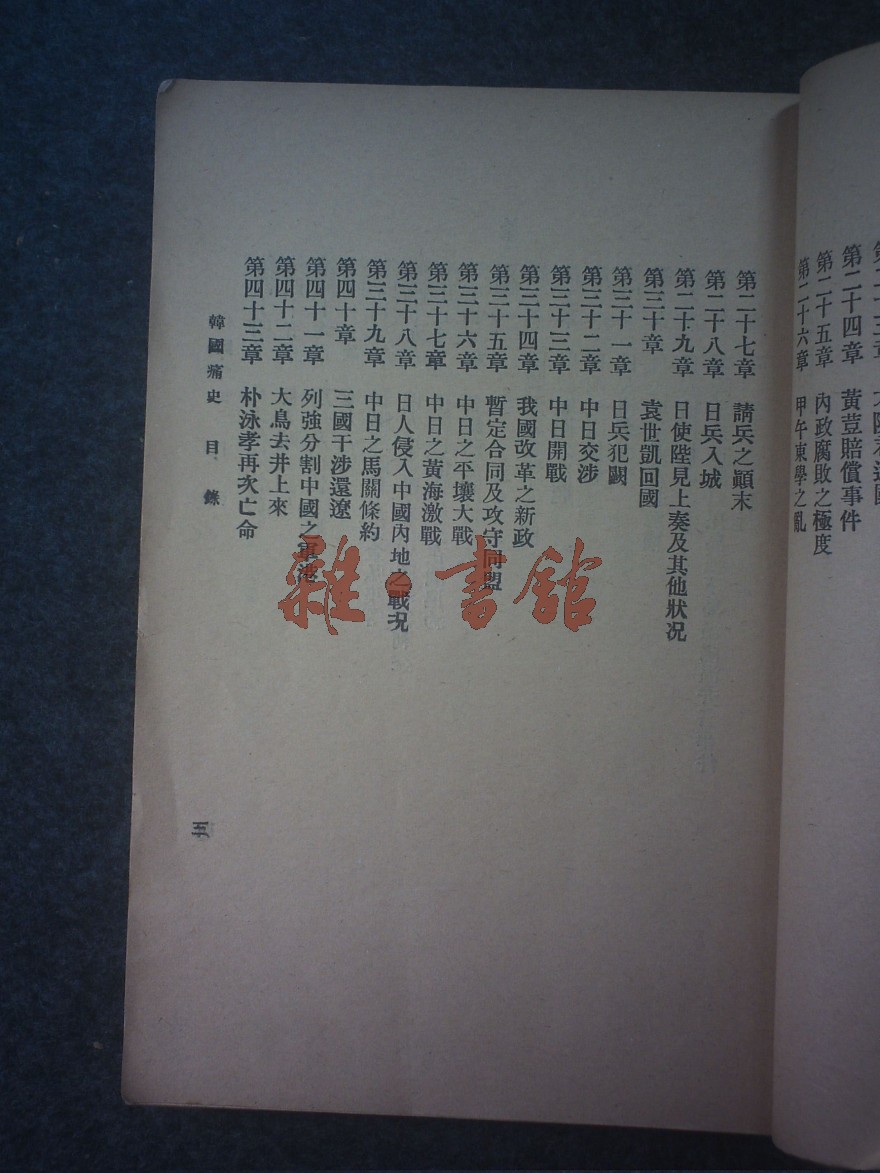 第二十四章　黃荳賠償事件
第二十五章　內政腐敗之極度
第二十六章　甲午東學之亂
第二十七章　請兵之顚末
第二十八章　日兵入城
第二十九章　日使陛見上奏及其他狀况
第三十章　袁世凱回國
第三十一章　日兵犯闕
第三十二章　中日交涉
第三十三章　中日開戰
第三十四章　我國改革之新政
第三十五章　暫定合同及攻守同盟
第三十六章　中日之平壤大戰
第三十七章　中日之黃海激戰
第三十八章　日人侵入中國內地之戰况
第三十九章　中日之馬關條約
第四十章　三國干涉還遼
第四十一章　列強分割中國之軍港
第四十二章　大鳥去井上來
第四十三章　朴泳孝再次亡命
韓國痛史　目錄
雜·書館